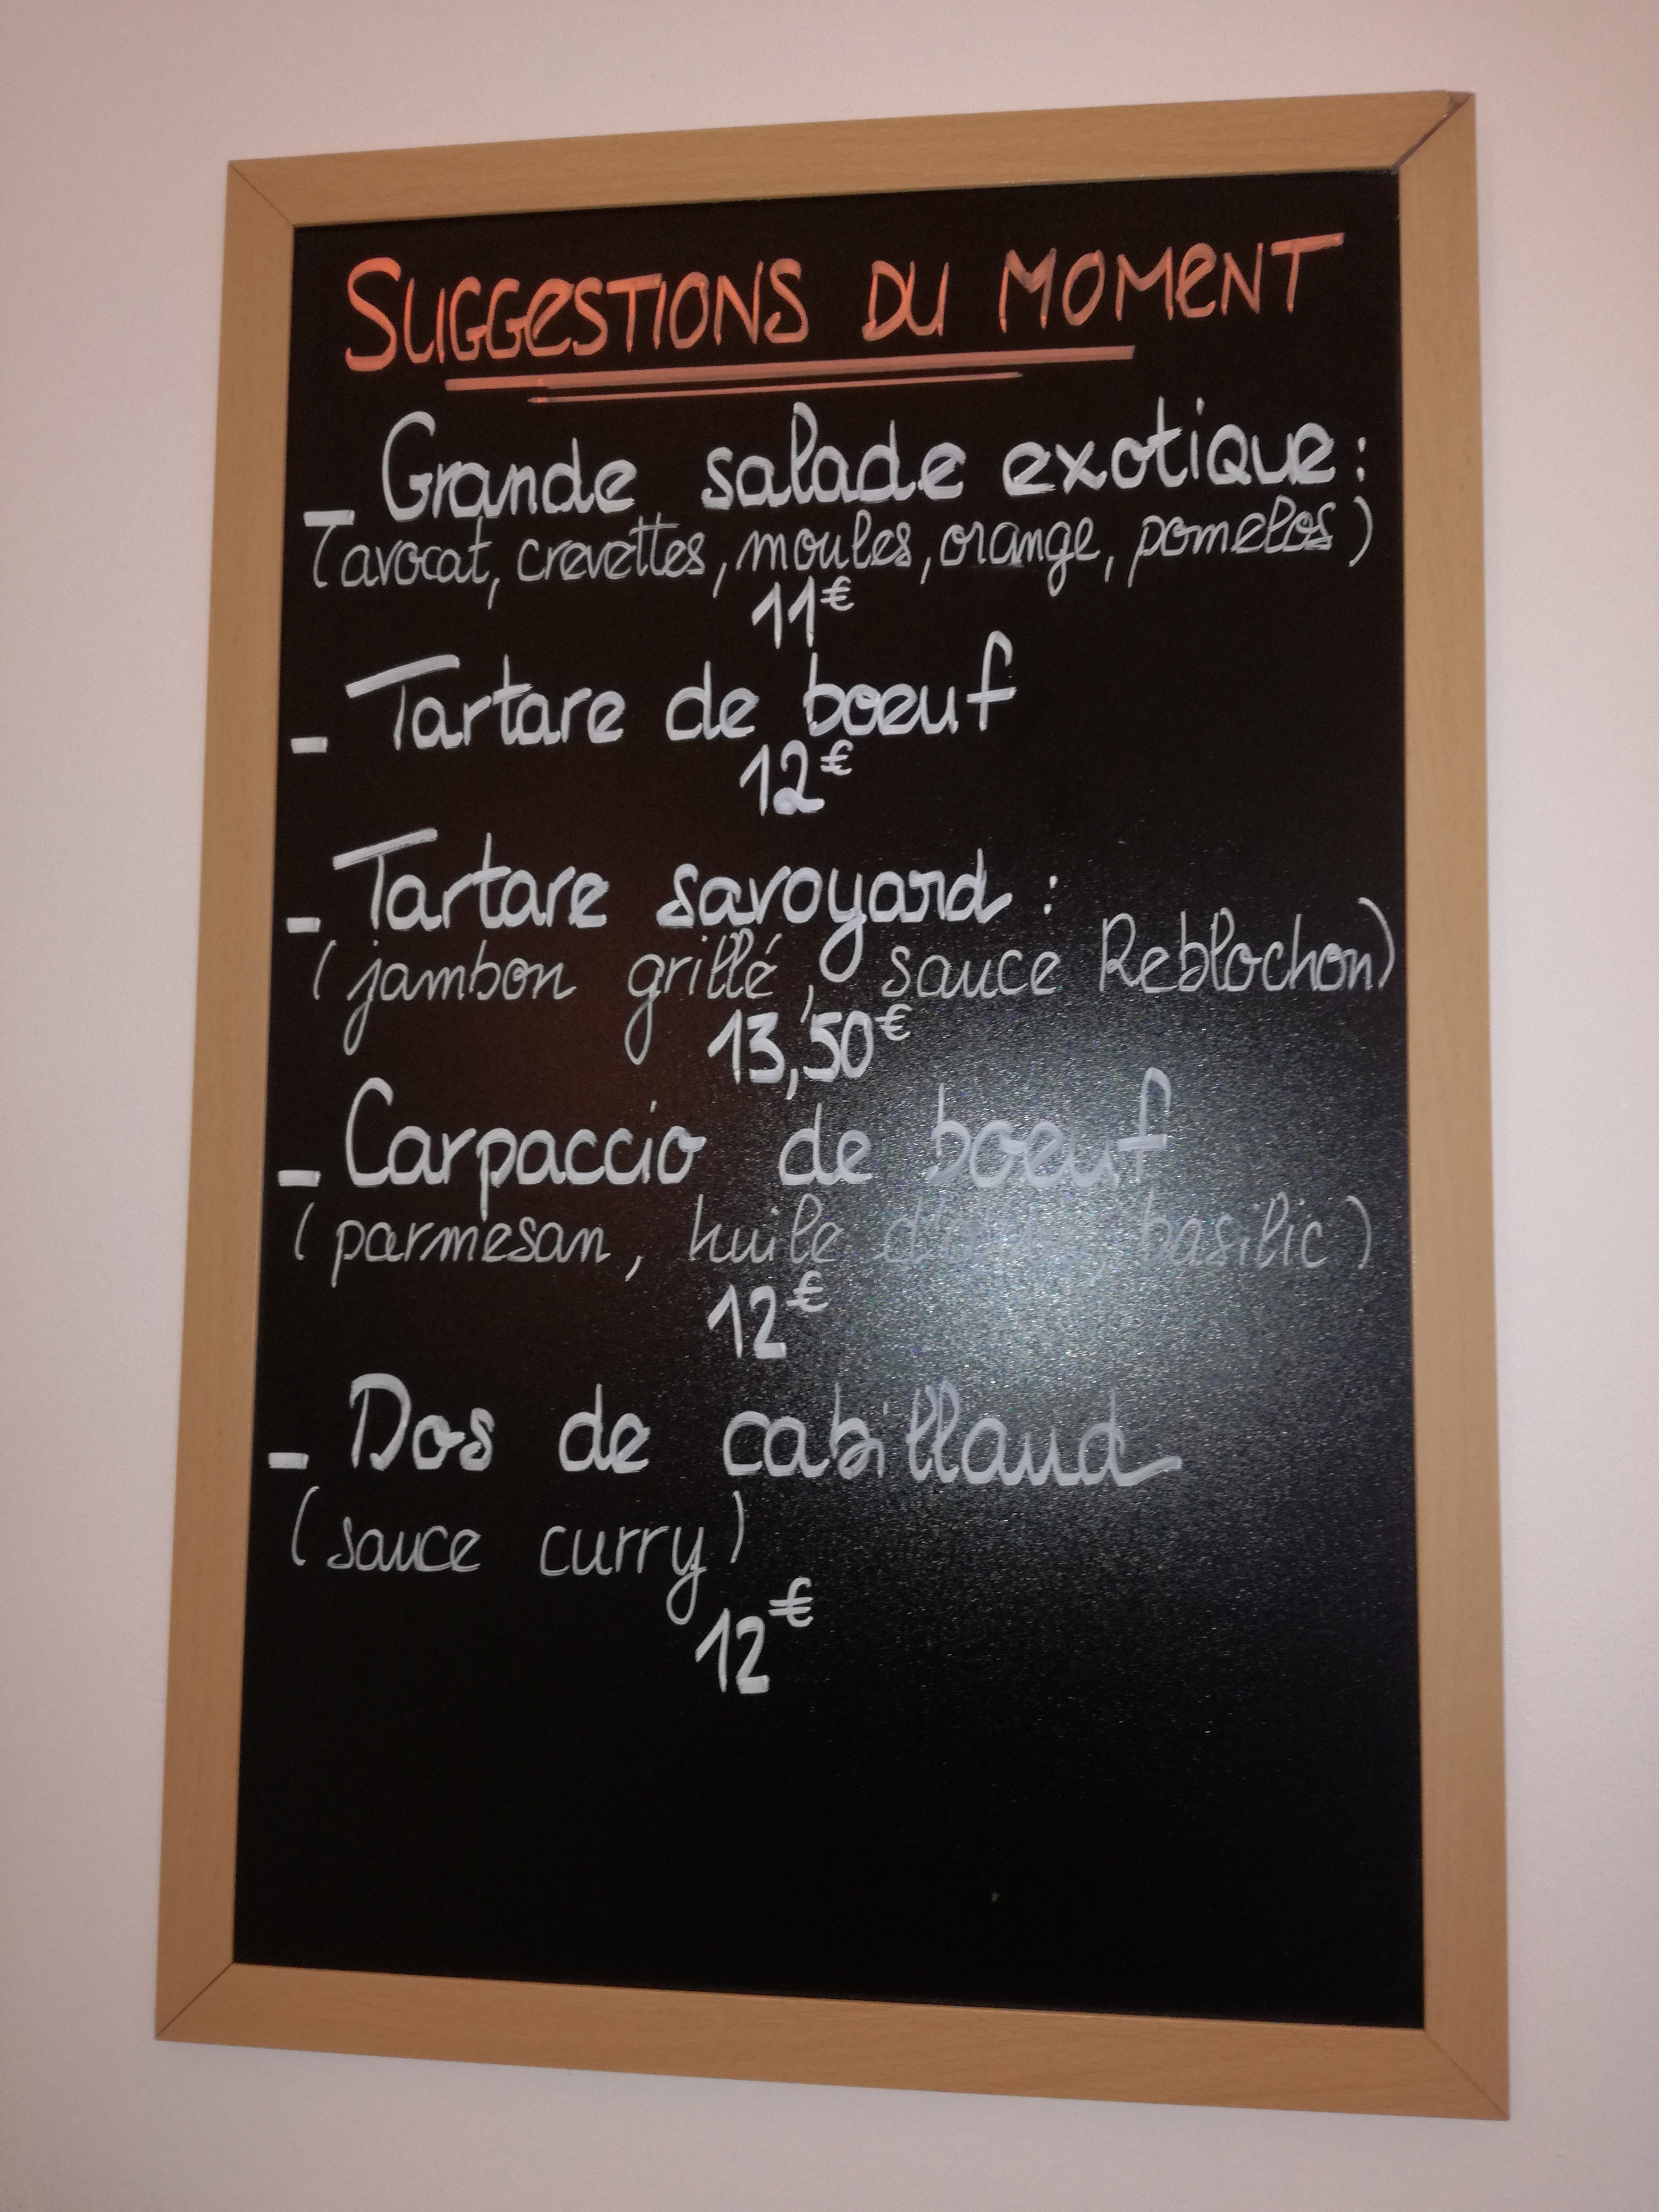 SUGGESTIONS DU MOMENT
- Grande salade exotique :
(avocat, crevettes, moules, orange, pomelos)
11€
- Tartare de boeuf
12€
- Tartare savoyard :
(jambon grillé, sauce Reblochon)
13,50€
- Carpaccio de boeuf
(parmesan, huile , basilic)
12€
- Dos de cabillaud
(sauce curry)
12€